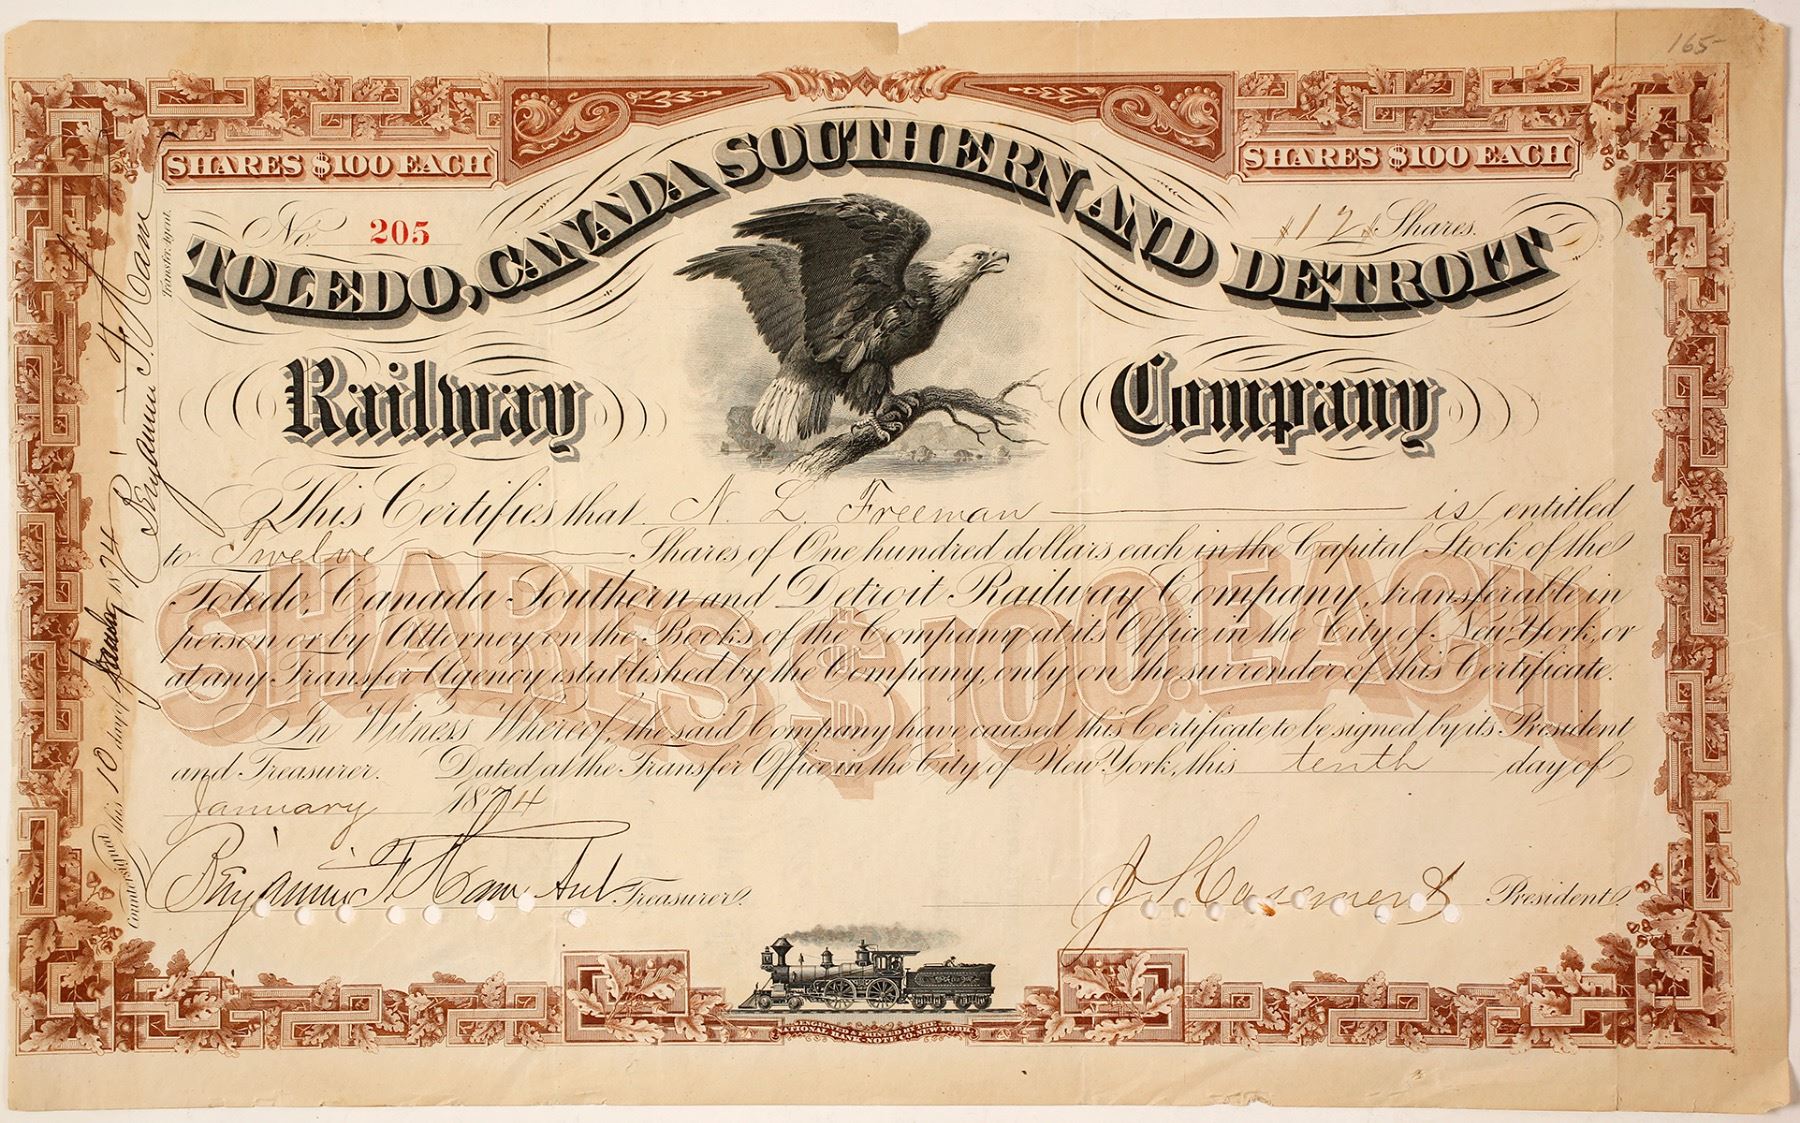 165-
SHARES $100 EACH
SHARES $100 EACH
No. 205
$12$ Shares.
TOLEDO, CANADA SOUTHERN AND DETROIT
Railway Company
This Certifies that N. L. Freeman is entitled
to Twelve Shares of One hundred dollars each in the Capital Stock of the
Toledo, Canada Southern and Detroit Railway Company, transferable in
person or by Attorney on the Books of the Company at its Office in the City of New York, or
at any Transfer Agency established by the Company, only on the surrender of this Certificate.
SHARES $100. EACH
In Witness Whereof, the said Company have caused this Certificate to be signed by its President
and Treasurer. Dated at the Transfer Office in the City of New York, this tenth day of
January 1874
Benjamin F. Ham Treasurer.
J. S. Casement President.
Countersigned this 10 day of January 1874
Benjamin F. Ham
Transfer Agent.
ENGRAVED & PRINTED BY THE
NATIONAL BANK-NOTE CO. NEW YORK